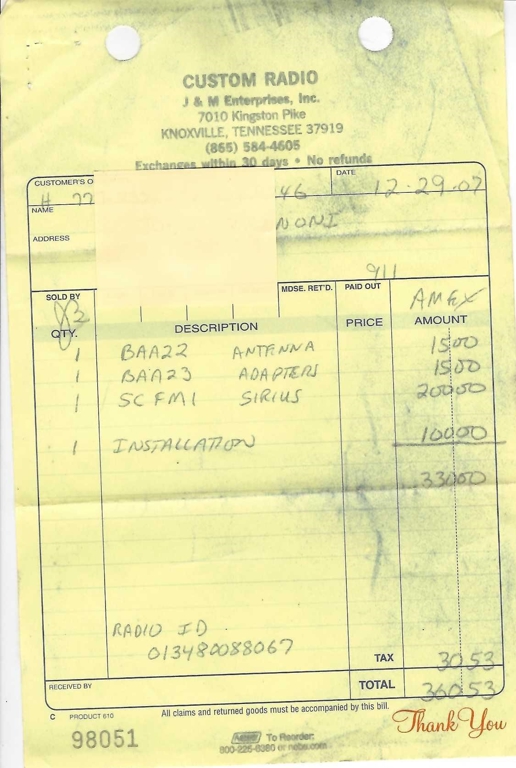 CUSTOM RADIO
J & M Enterprises, Inc.
7010 Kingston Pike
KNOXVILLE, TENNESSEE 37919
(865) 584-4605
Exchanges within 30 days • No refunds
CUSTOMER'S O
DATE
H 77 46 12-29-07
NAME
NONI
ADDRESS
911
SOLD BY MDSE. RET'D. PAID OUT
AMEX
QTY. DESCRIPTION PRICE AMOUNT
1 BAA22 ANTENNA 1500
1 BAA23 ADAPTERS 1500
1 SCFM1 SIRIUS 20000
1 INSTALLATION 10000
33000
RADIO ID
013480088067
TAX 3053
RECEIVED BY TOTAL 36053
C PRODUCT 610 All claims and returned goods must be accompanied by this bill.
Thank You
98051
To Reorder:
800-225-6380 or nebs.com